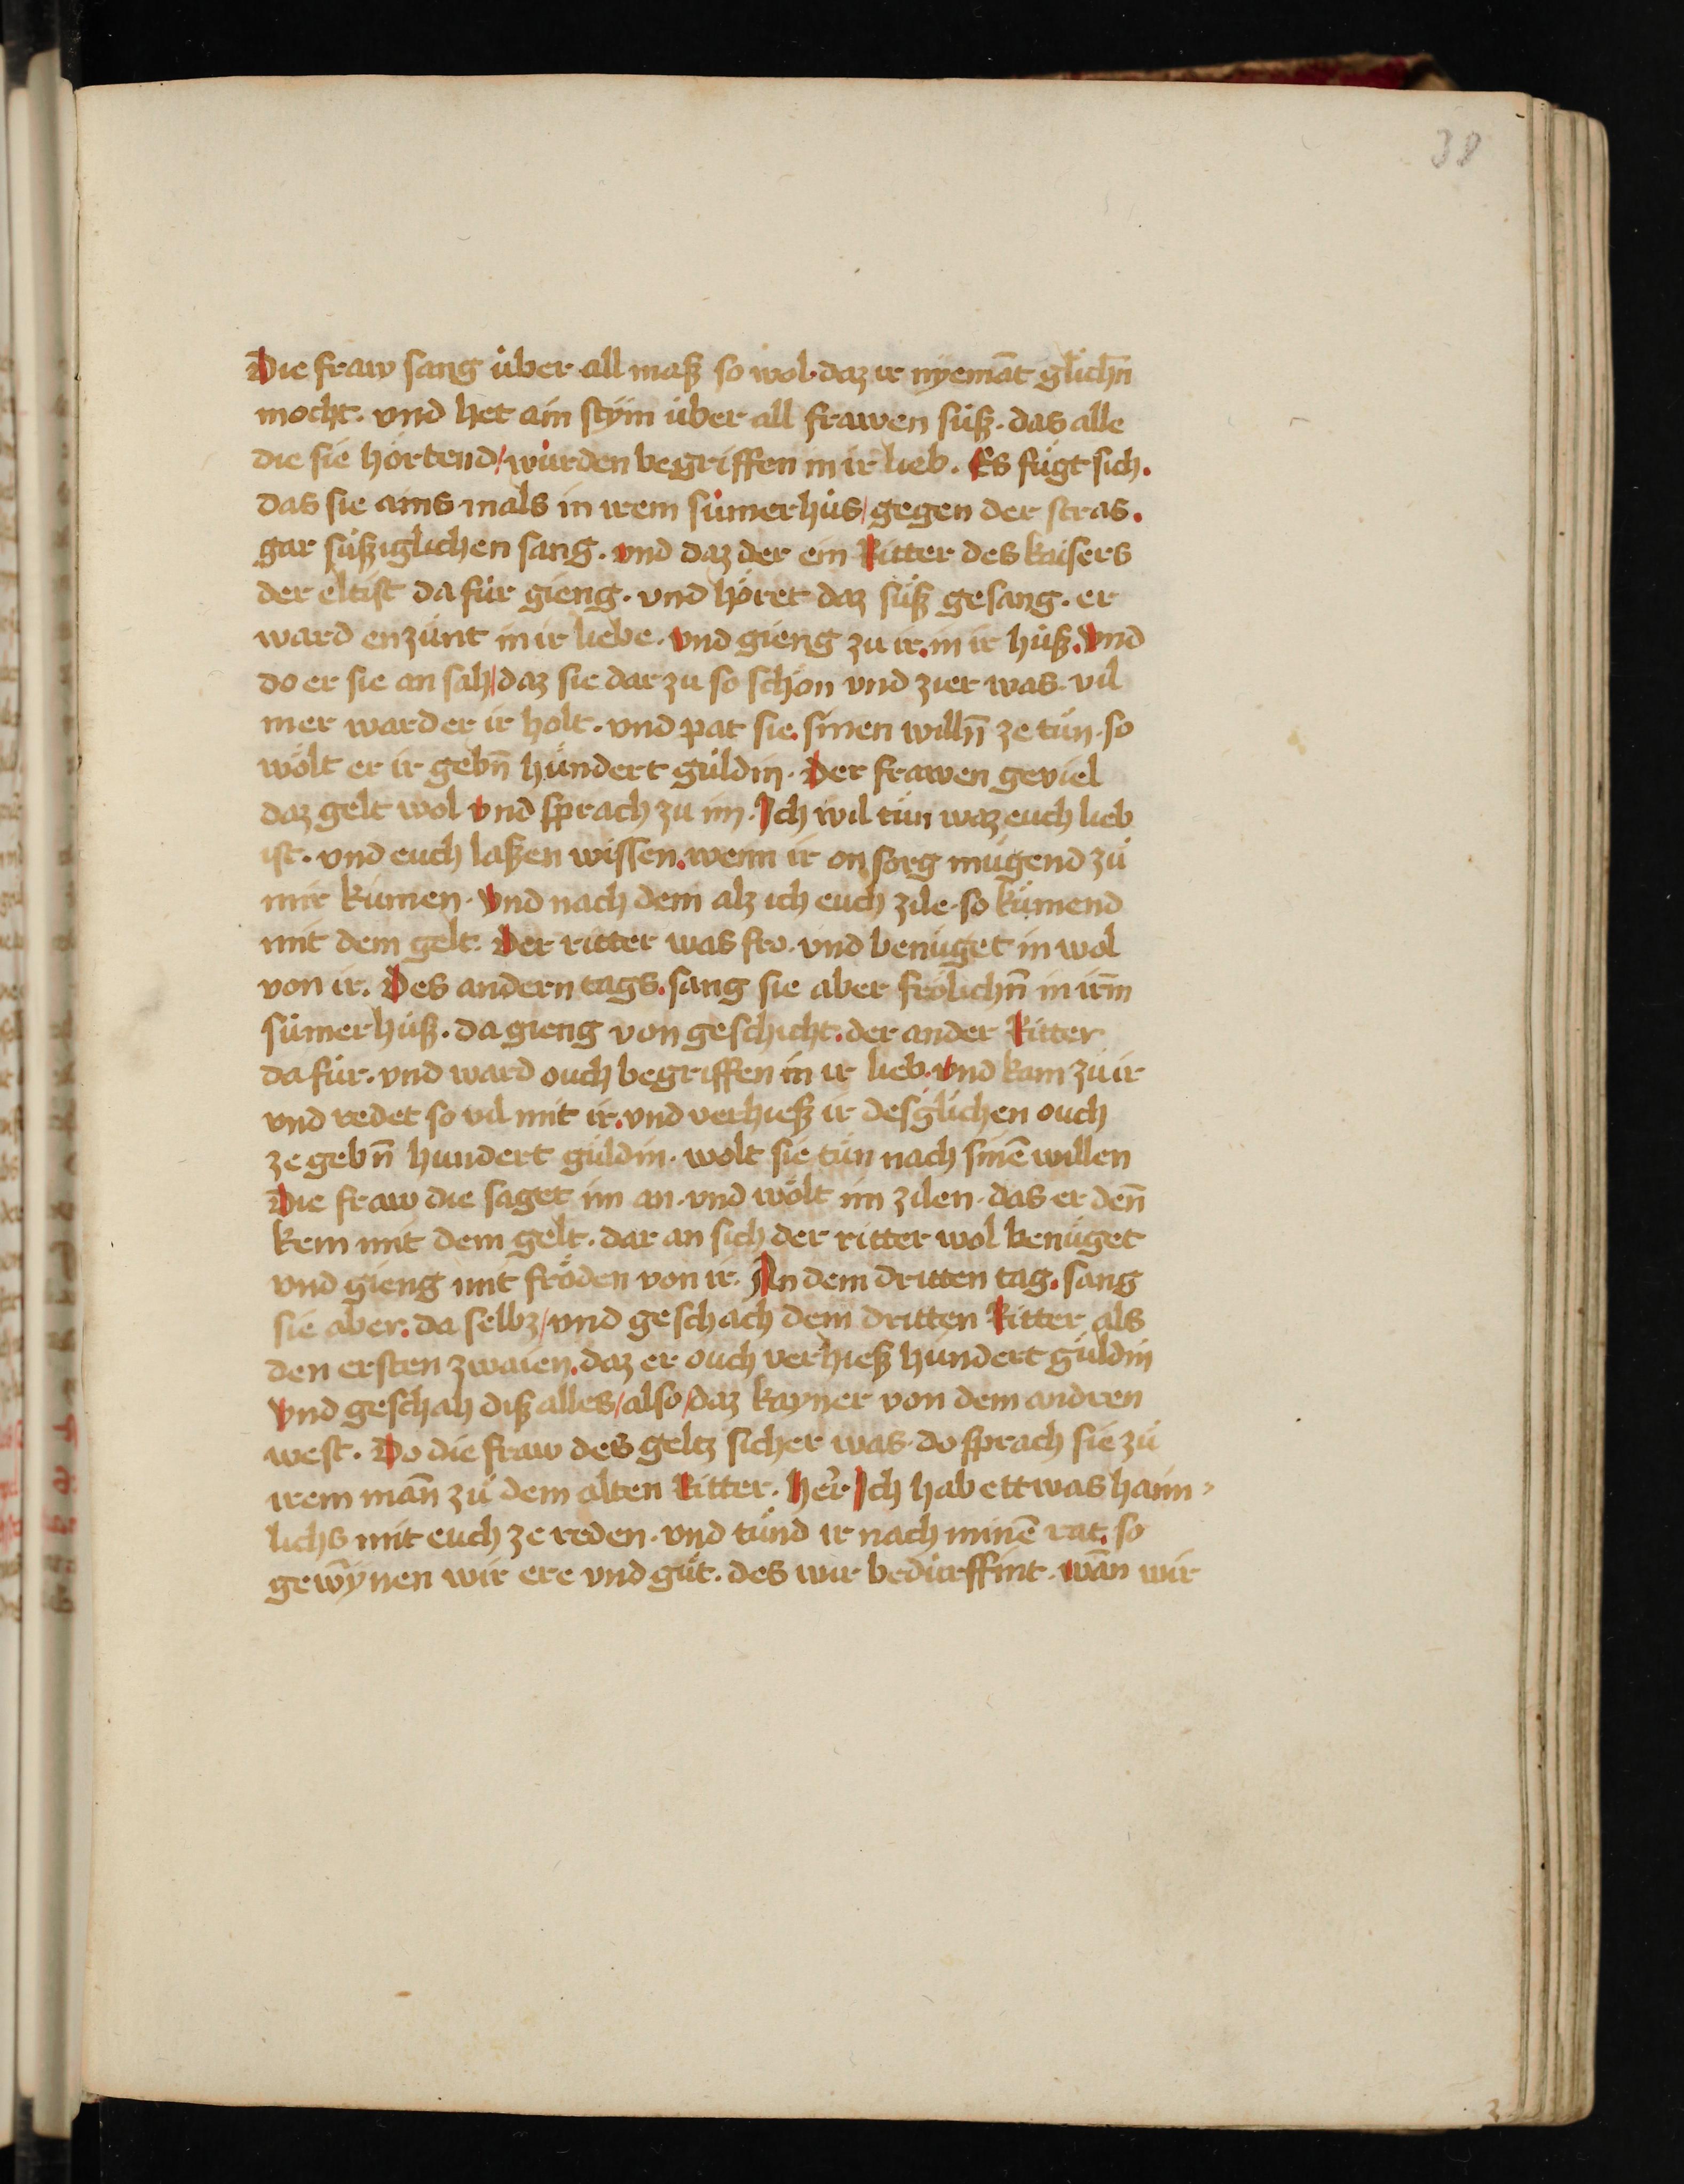 38
Die fraw sang über all maß so wol· daz ir nyemāt glichn̄
mocht· vnd het ain stym über all frawen süß· das alle
die sie hörtend/ würden begriffen in ir lieb. Es fügt sich.
das sie ains mals in irem sumerhus/ gegen der stras.
gar süßiglichen sang. vnd daz der ein Ritter des kaisers
der eltist da für gieng· vnd höret daz süß gesang. er
ward enzünt in ir liebe. vnd gieng zu ir. in ir huß. Vnd
do er sie an sah/ daz sie dar zu so schön vnd zier was. vil
mer ward er ir holt· vnd pat sie. sinen willn̄ ze tün. so
wölt er ir gebn̄ hundert guldin. Der frawen geviel
daz gelt wol vnd sprach zu im. Ich wil tün waz euch lieb
ist· vnd euch laßen wissen. wenn ir on sorg mugend zü
mir kumen. Vnd nach dem alz ich euch zile. so kümend
mit dem gelt. Der ritter was fro. vnd benüget in wol
von ir. Des andern tags. sang sie aber frölichn̄ in irm̄
sümerhuß. da gieng von geschicht. der ander Ritter
da für· vnd ward ouch begriffen in ir lieb. vnd kam zü ir
vnd redet so vil mit ir. vnd verhieß ir desglichen ouch
ze gebn̄ hundert guldin. wolt sie tün nach sinē willen
Die fraw die saget im an. vnd wölt im zilen· das er den̄
kem mit dem gelt. dar an sich der ritter wol benüget
vnd gieng mit fröden von ir. An dem dritten tag. sang
sie aber. da selbz/ vnd geschach dem dritten Ritter als
den ersten zwaien. daz er ouch verhieß hundert guldin
Vnd geschah diß alles/ also/ daz kayner von dem andren
west. Do die fraw des geltz sicher was. do sprach sie zü
irem man̄ zü dem alten Ritter. Her̄ Ich hab ettwas haim-
lichs mit euch ze reden. vnd tünd ir nach minē rat. so
gewȳnen wir ere vnd güt. des wir bedürffint. wān wir